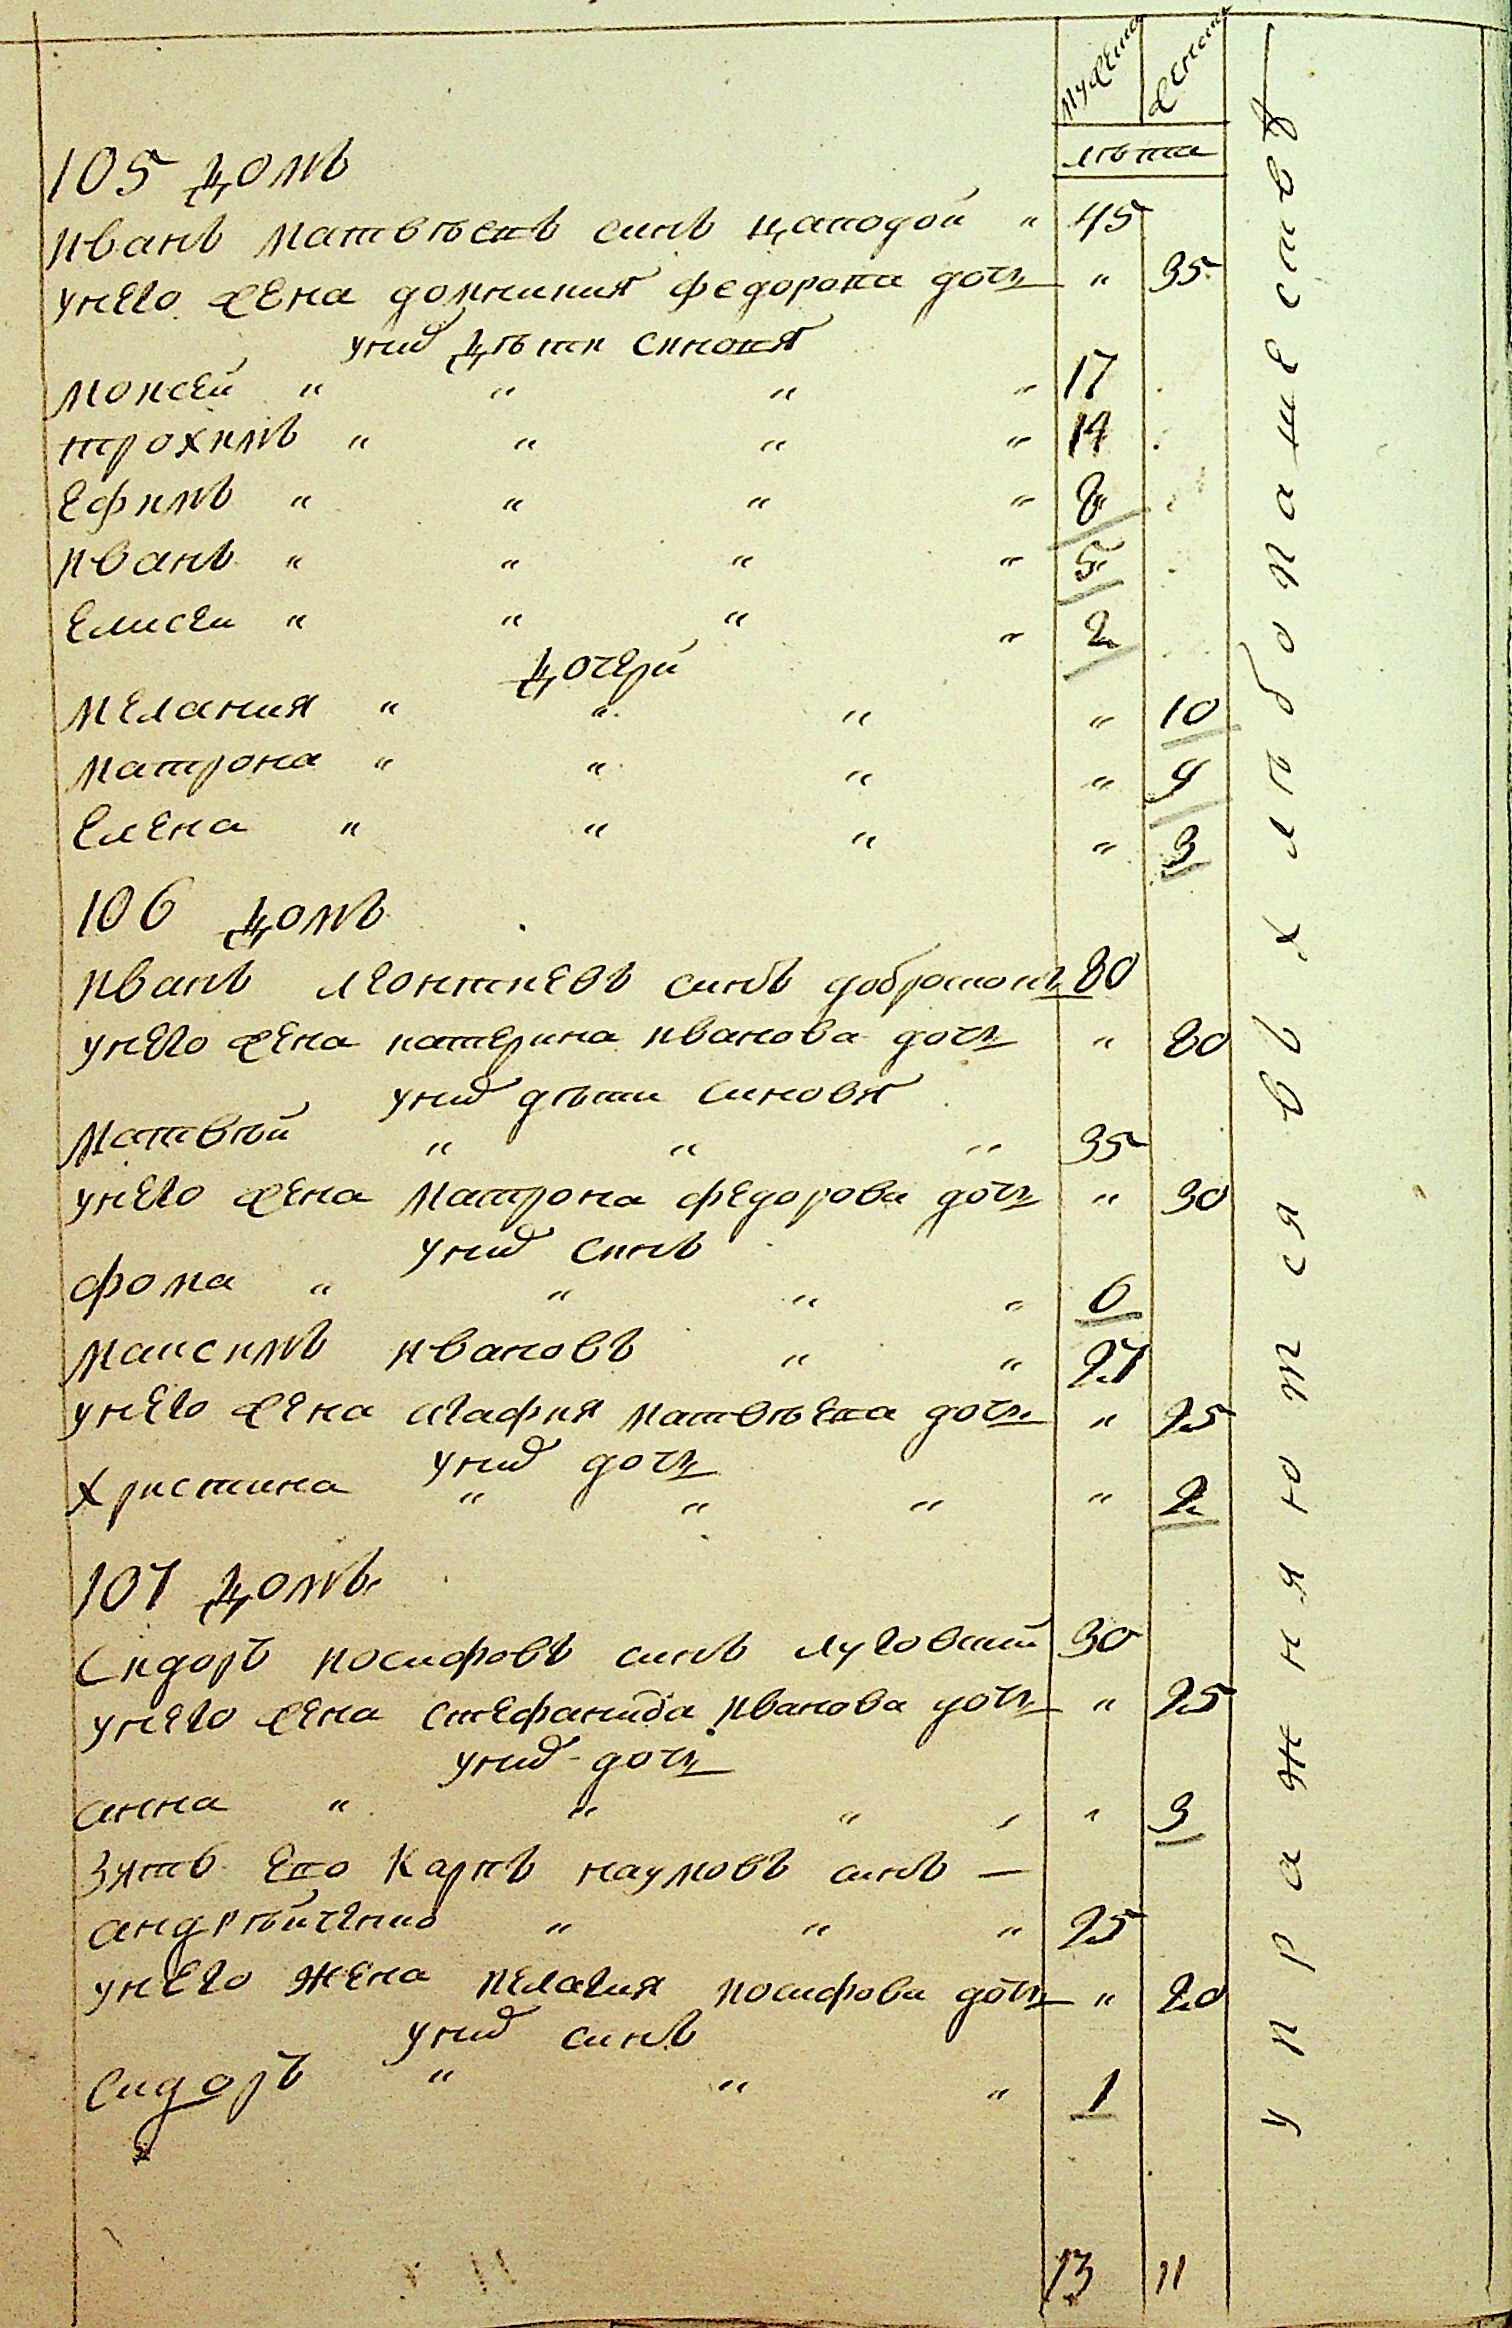 мужеска женска
лѣта
105 Домъ
Иванъ Матвѣевъ синъ цаподой " 45
унего жена домникия федорова дочъ " 35
унихъ Дѣти синовя
Моисей " " " " 17
трохимъ " " " " 14
Ефимъ " " " " 8
Иванъ " " " " 5
Елисеи " " " " 2
Дочери
Мелания " " " " 10
Матрона " " " " 4
Елена " " " " 3
106 Домъ
Иванъ леонтиевъ синъ 80
унего жена катерина Иванова дочъ " 80
унихъ дѣти синовя
Матвѣй " " " 35
унего жена Матрона федорова дочъ " 30
унихъ синъ
фома " " " " 6
Максимъ Ивановъ " " 27
унего жена агафия Матвѣева дочъ " 25
унихъ дочъ
Христина " " " " 2
107 Домъ
Сидоръ иосифовъ синъ луговший 30
унего жена стефанида Иванова дочъ " 25
унихъ дочъ
анна " " " " " 3
Зять Его Карпъ наумовъ синъ —
андрѣйченко " " " 25
унего жена пелагия иосифова дочъ " 20
унихъ синъ
Сидоръ " " " 1
13 11
упражняются въ хлѣбопашествѣ